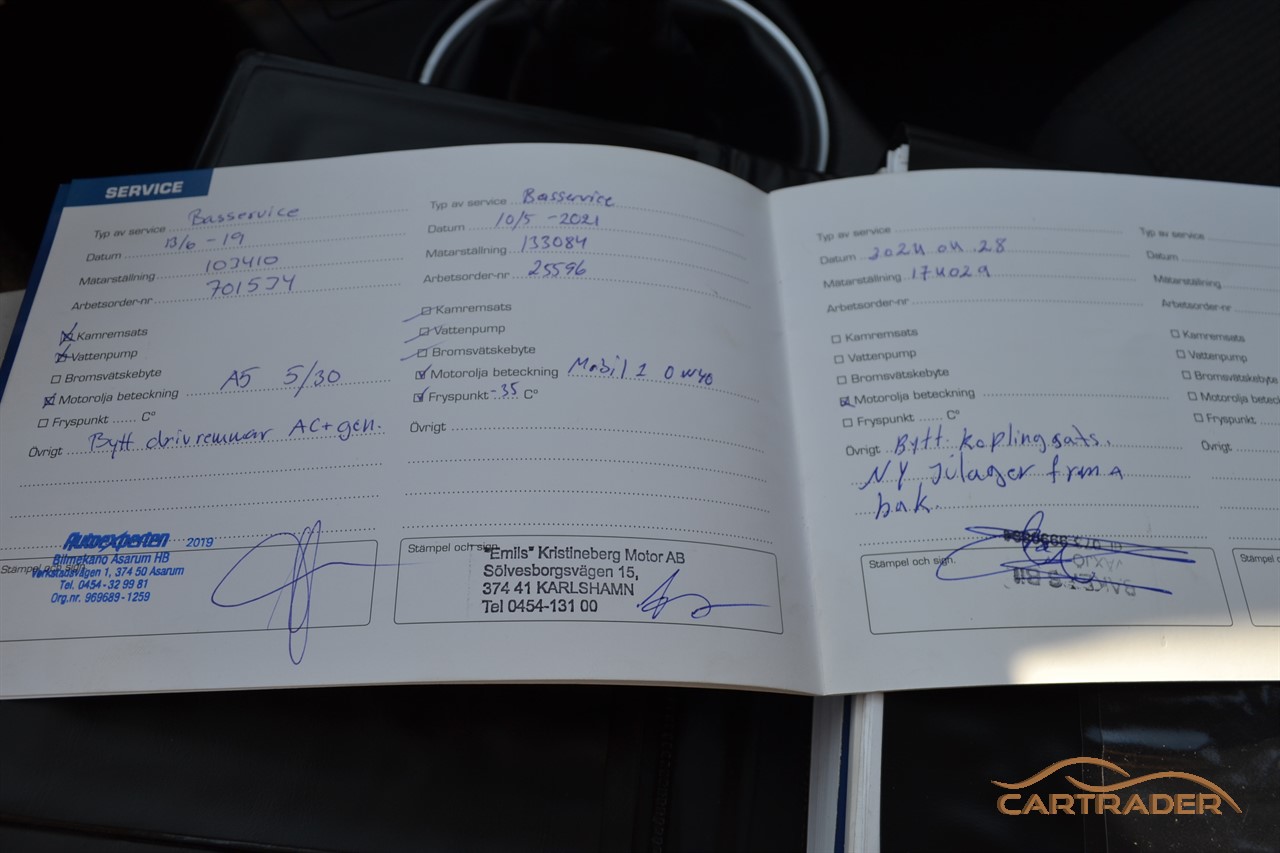 SERVICE
Typ av service Basservice
Datum 13/6 - 19
Mätarställning 103410
Arbetsorder-nr 701534
Kamremsats
Vattenpump
Bromsvätskebyte
Motorolja beteckning A5 5/30
Fryspunkt ...... C°
Övrigt Bytt drivremmar AC+gen.
Stämpel och sign.
Autoexperten 2019
Bilmekano Asarum HB
Verkstadsvägen 1, 374 50 Asarum
Tel. 0454 - 32 99 81
Org.nr. 969689 - 1259
Typ av service Basservice
Datum 10/5 - 2021
Mätarställning 133084
Arbetsorder-nr 25596
Kamremsats
Vattenpump
Bromsvätskebyte
Motorolja beteckning Mobil 1 0w40
Fryspunkt -35 C°
Övrigt
Stämpel och sign.
"Emils" Kristineberg Motor AB
Sölvesborgsvägen 15,
374 41 KARLSHAMN
Tel 0454-131 00
Typ av service
Datum 2024 04 28
Mätarställning 174029
Arbetsorder-nr
Kamremsats
Vattenpump
Bromsvätskebyte
Motorolja beteckning
Fryspunkt ...... C°
Övrigt Bytt koplingsats.
NY Julager fram a
bak.
Stämpel och sign.
Typ av service
Datum
Mätarställning
Arbetsorder-nr
Kamremsats
Vattenpump
Bromsvätskebyte
Motorolja
Fryspunkt
Övrigt
CARTRADER